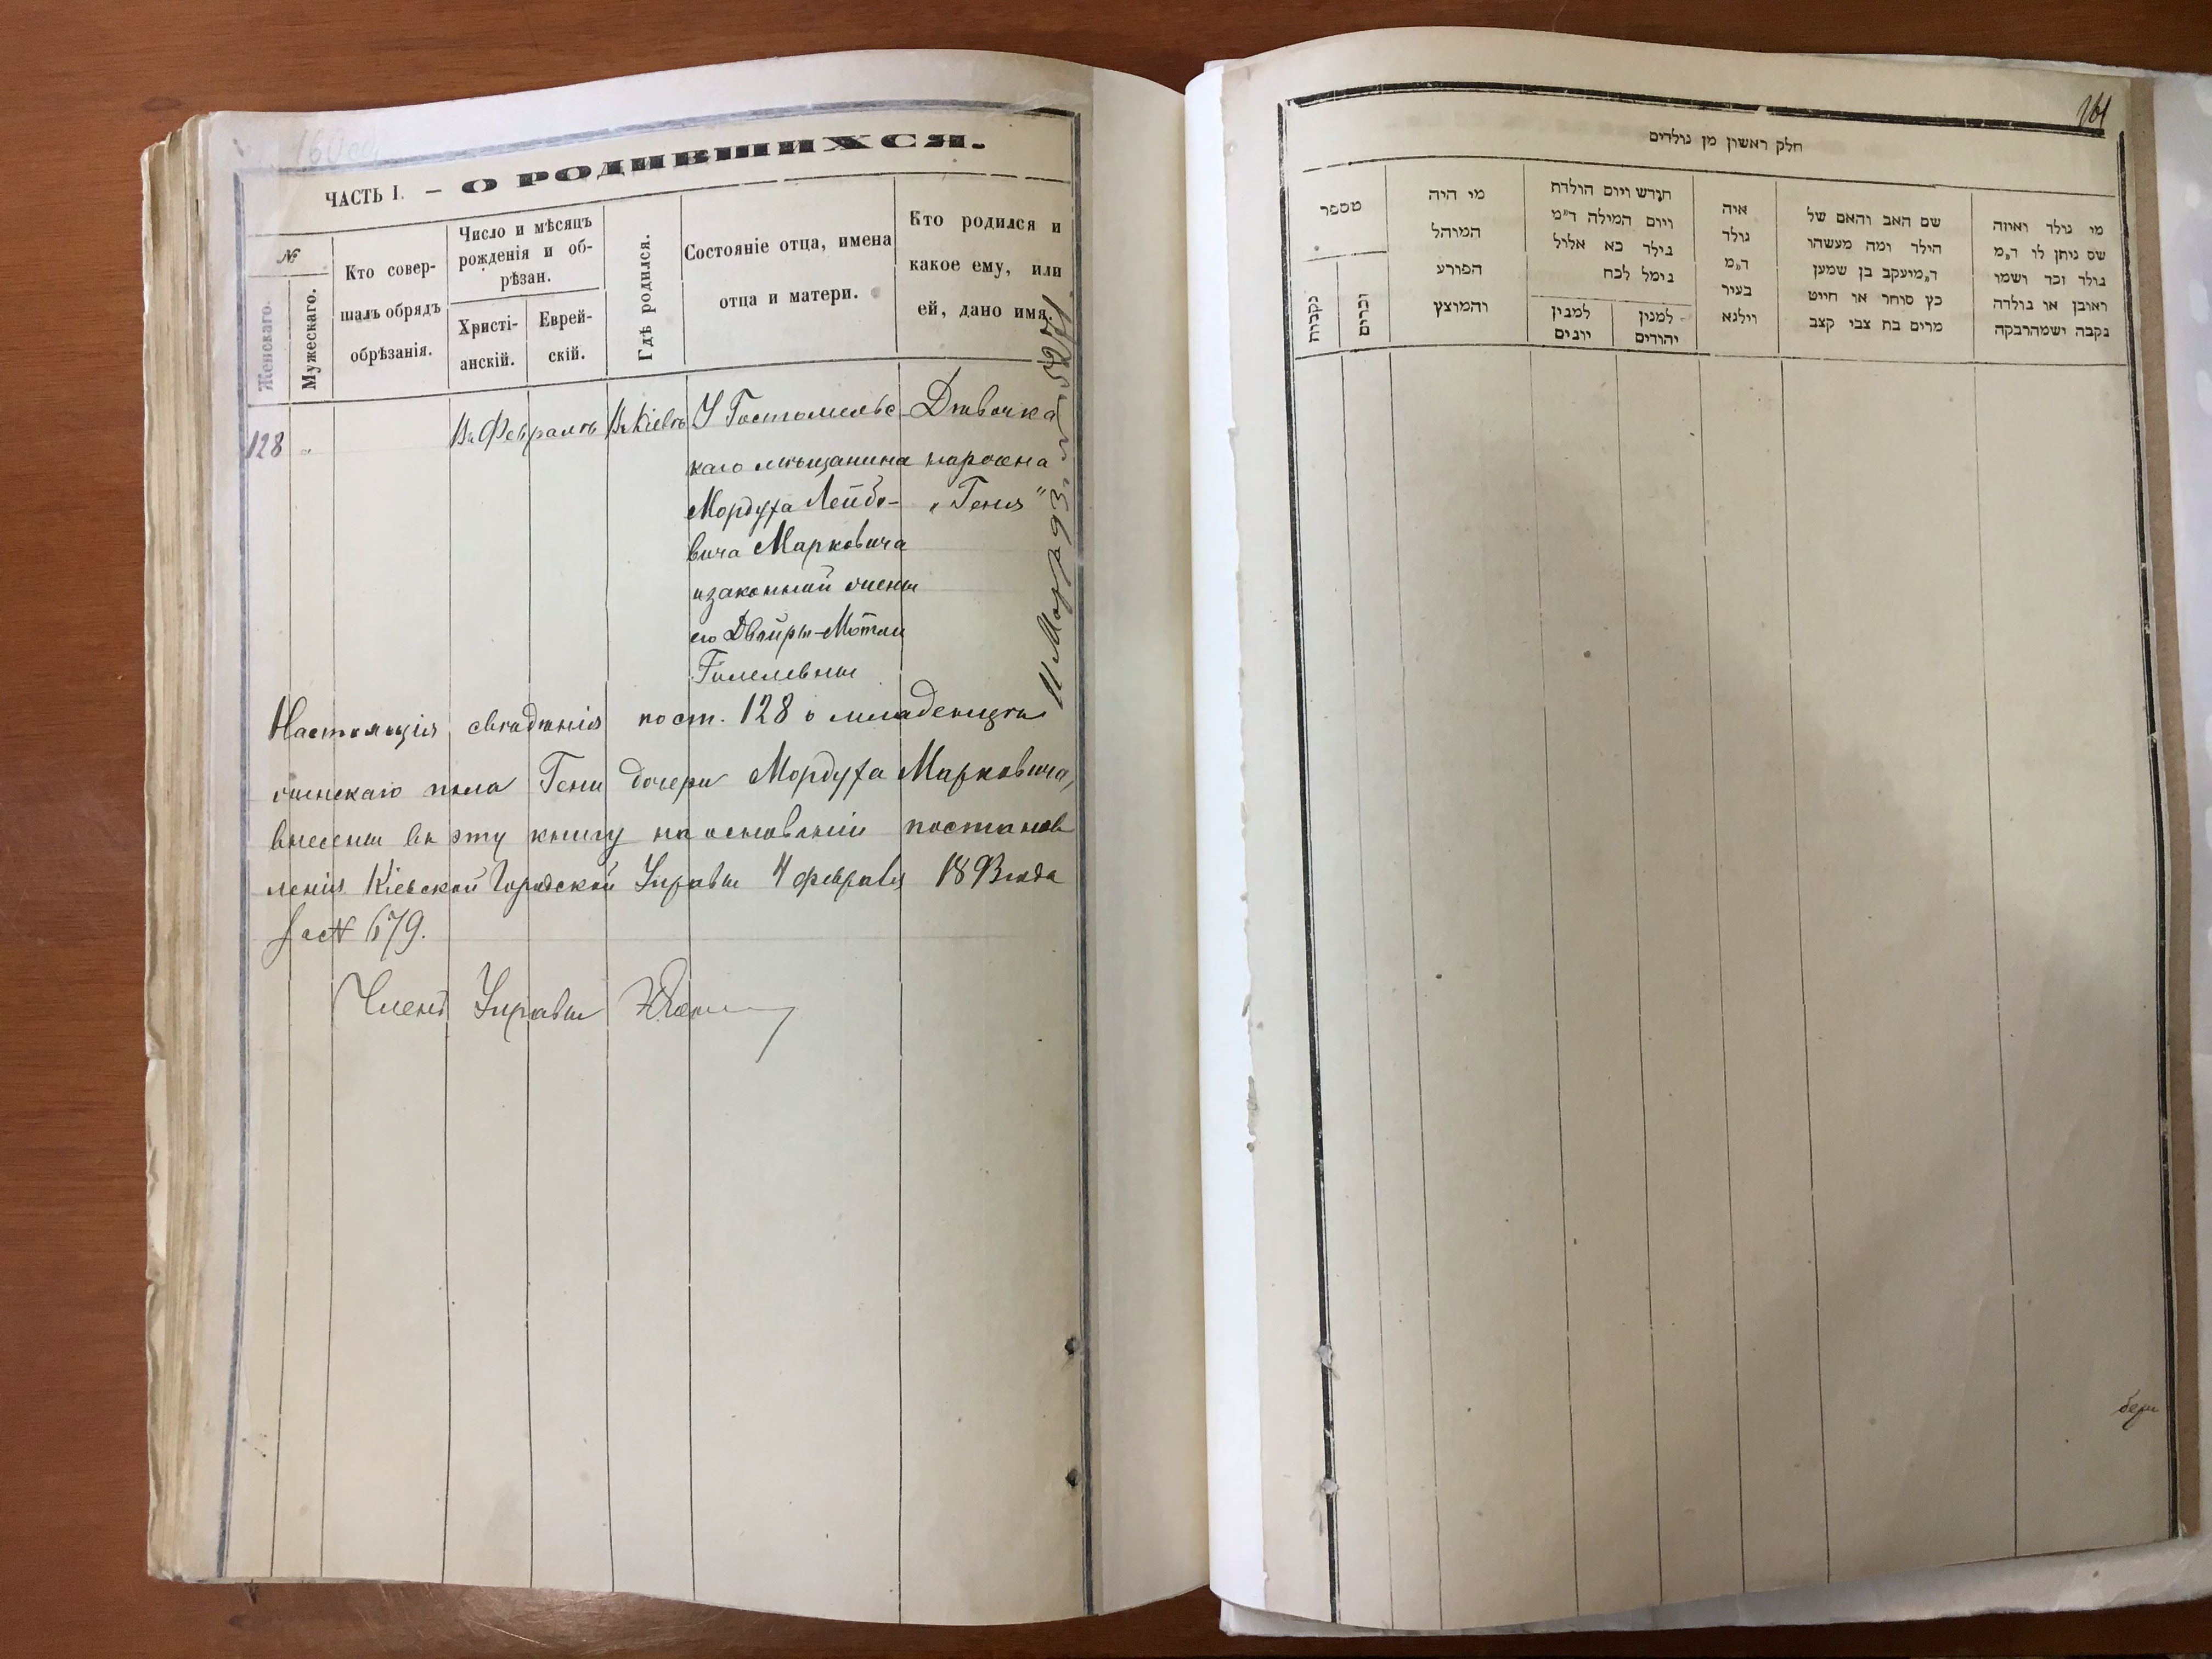 160 об
ЧАСТЬ I. — О РОДИВШИХСЯ.
№
Женскаго.
Мужескаго.
Кто совер-
шалъ обрядъ
обрѣзанія.
Число и мѣсяцъ
рожденія и об-
рѣзан.
Христі-
анскій.
Еврей-
скій.
Гдѣ родился.
Состояніе отца, имена
отца и матери.
Кто родился и
какое ему, или
ей, дано имя.
128 „ Въ Февралѣ Въ Кіевѣ У Гостомельс- Дѣвочка
каго мѣщанина наречена
Мордуха Лейбо- „Геня"
вича Марковича
и законной жены
его Двойры-Мотли
Гилелевны
Настоящія свѣдѣнія по ст. 128 о младенцѣ
женскаго пола Гени дочери Мордуха Марковича,
внесены въ эту книгу на основаніи постанов
ленія Кіевской Городской Управы 4 февраля 1893 года
за № 679.
Членъ Управы
11 Марта 93 г. №
161
חלק ראשון מן נולדים
מספר
נקבות
זכרים
מי היה
המוהל
הפורע
והמוצץ
חודש ויום הולדת
ויום המילה ד״מ
נולד כא אלול
נימל לכח
למנין
יונים
למנין
יהודים
איה
נולד
ד״מ
בעיר
ווילנא
שם האב והאם של
הילד ומה מעשהו
ד״מ יעקב בן שמען
כץ סוחר או חייט
מרים בת צבי קצב
מי נולד ואיזה
שם ניתן לו ד״מ
נולד זכר ושמו
ראובן או נולדה
נקבה ישמהרבקה